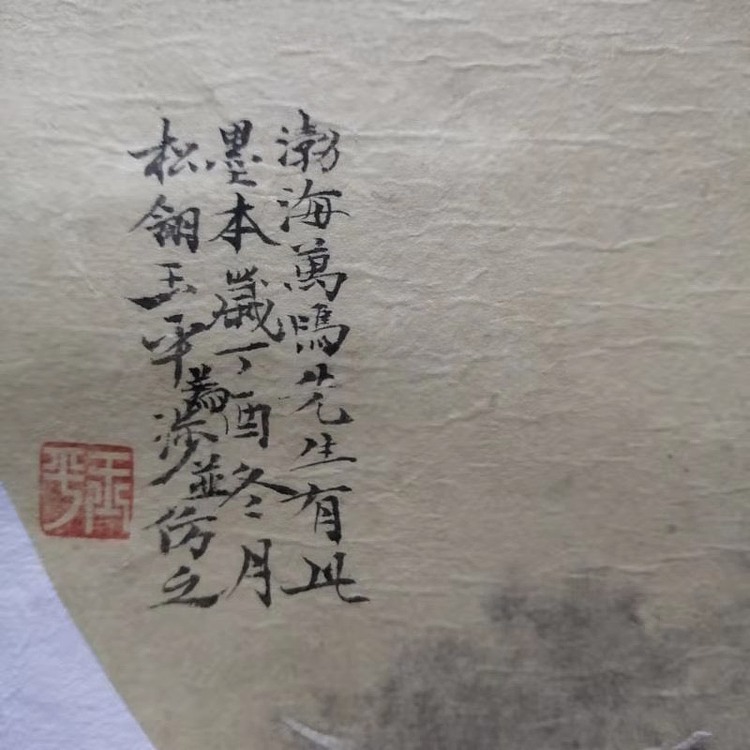 渤海萬鳴先生有此
墨本歲丁酉冬月
松翎玉平並仿之